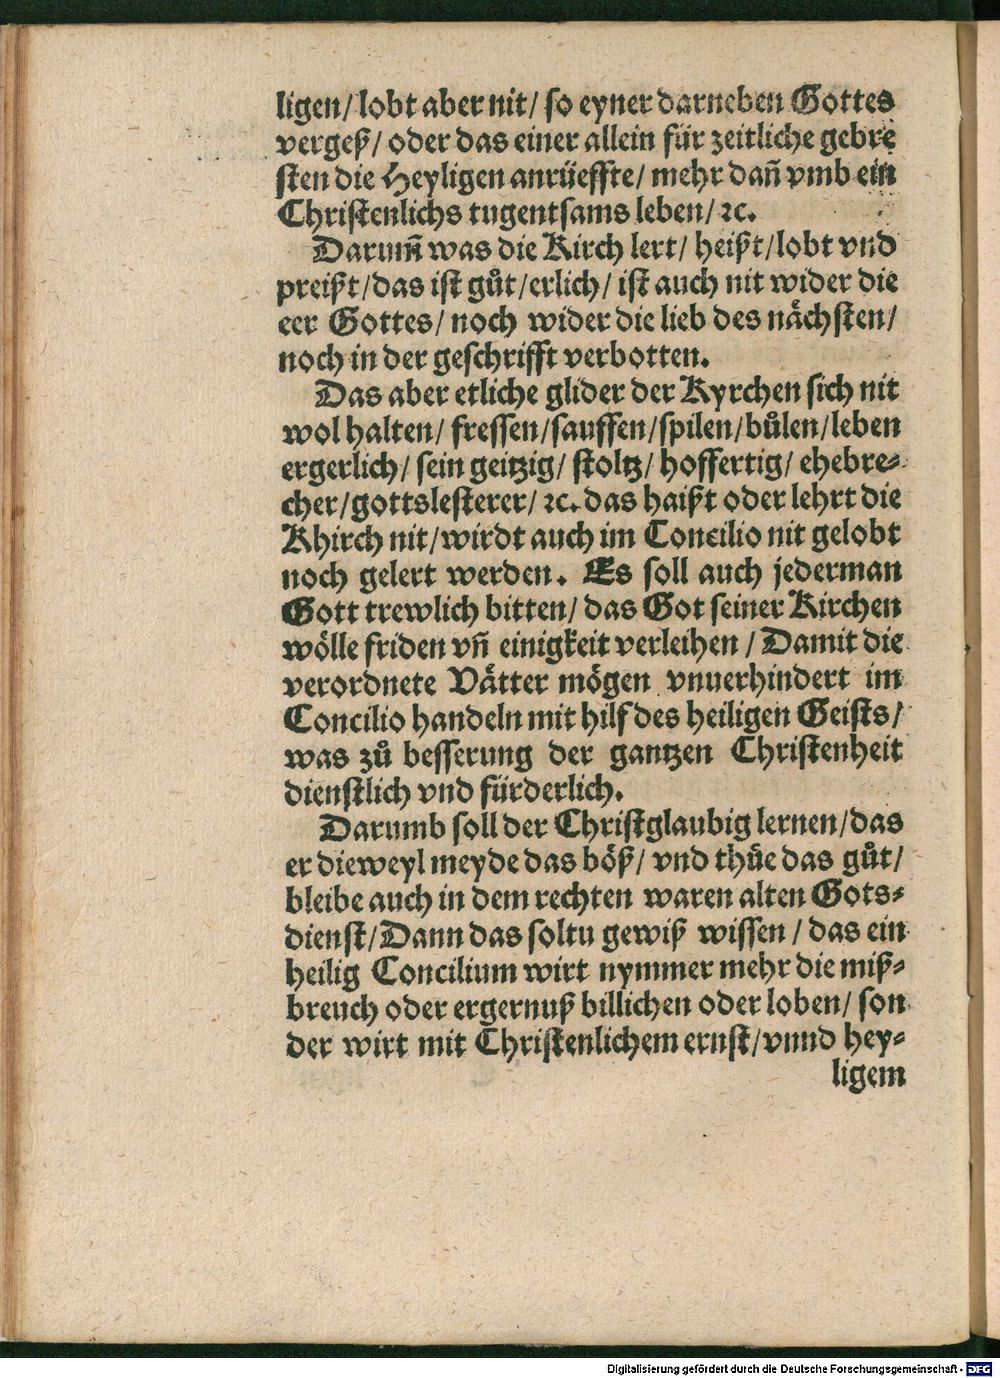 ligen/ lobt aber nit/ so eyner darneben Gottes
vergeß/ oder das einer allein für zeitliche gebre
sten die Heyligen anrüeffte/ mehr dañ vmb ein
Christenlichs tugentsams leben/ ꝛc.
Darum̃ was die Kirch lert/ heißt/ lobt vnd
preißt/ das ist gůt/ erlich/ ist auch nit wider die
eer Gottes/ noch wider die lieb des nächsten/
noch in der geschrifft verbotten.
Das aber etliche glider der Kyrchen sich nit
wol halten/ fressen/ sauffen/ spilen/ bůlen/ leben
ergerlich/ sein geitzig/ stoltz/ hoffertig/ ehebre-
cher/ gottslesterer/ ꝛc. das haißt oder lehrt die
Khirch nit/ wirdt auch im Concilio nit gelobt
noch gelert werden. Es soll auch jederman
Gott trewlich bitten/ das Got seiner Kirchen
wölle friden vñ einigkeit verleihen / Damit die
verordnete Vätter mögen vnuerhindert im
Concilio handeln mit hilf des heiligen Geists/
was zů besserung der gantzen Christenheit
dienstlich vnd fürderlich.
Darumb soll der Christglaubig lernen/ das
er dieweyl meyde das böß/ vnd thüe das gůt/
bleibe auch in dem rechten waren alten Gots-
dienst/ Dann das soltu gewiß wissen / das ein
heilig Concilium wirt nymmer mehr die miß-
breuch oder ergernuß billichen oder loben/ son
der wirt mit Christenlichem ernst/ vnnd hey-
ligem
Digitalisierung gefördert durch die Deutsche Forschungsgemeinschaft - DFG